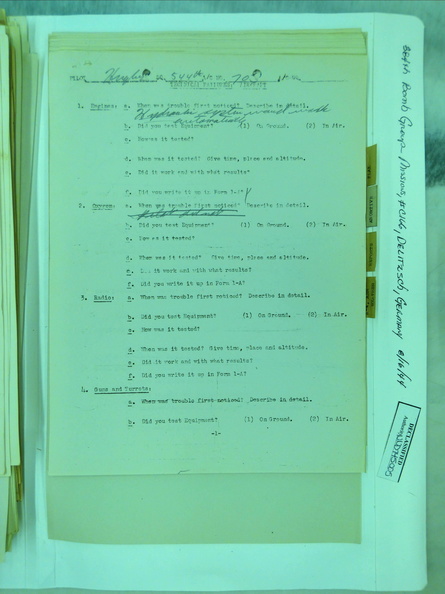 PILOT 544 A/C NO. 702
TECHNICAL FAILURES REPORT
1. Engines: a. When was trouble first noticed? Describe in detail.
Hydraulic system would work
automatically
b. Did you test Equipment? (1) On Ground. (2) In Air.
c. How was it tested?
d. When was it tested? Give time, place and altitude.
e. Did it work and with what results?
f. Did you write it up in Form 1-A?
2. a. When was trouble first noticed? Describe in detail.
b. Did you test Equipment? (1) On Ground. (2) In Air.
c. How was it tested?
d. When was it tested? Give time, place and altitude.
e. Did it work and with what results?
f. Did you write it up in Form 1-A?
3. Radio: a. When was trouble first noticed? Describe in detail.
b. Did you test Equipment? (1) On Ground. (2) In Air.
c. How was it tested?
d. When was it tested? Give time, place and altitude.
e. Did it work and with what results?
f. Did you write it up in Form 1-A?
4. Guns and Turrets:
a. When was trouble first noticed? Describe in detail.
b. Did you test Equipment? (1) On Ground. (2) In Air.
-1-
384th Bomb Group Mission, #166, Delitzsch, Germany 8/16/44
DECLASSIFIED
Authority